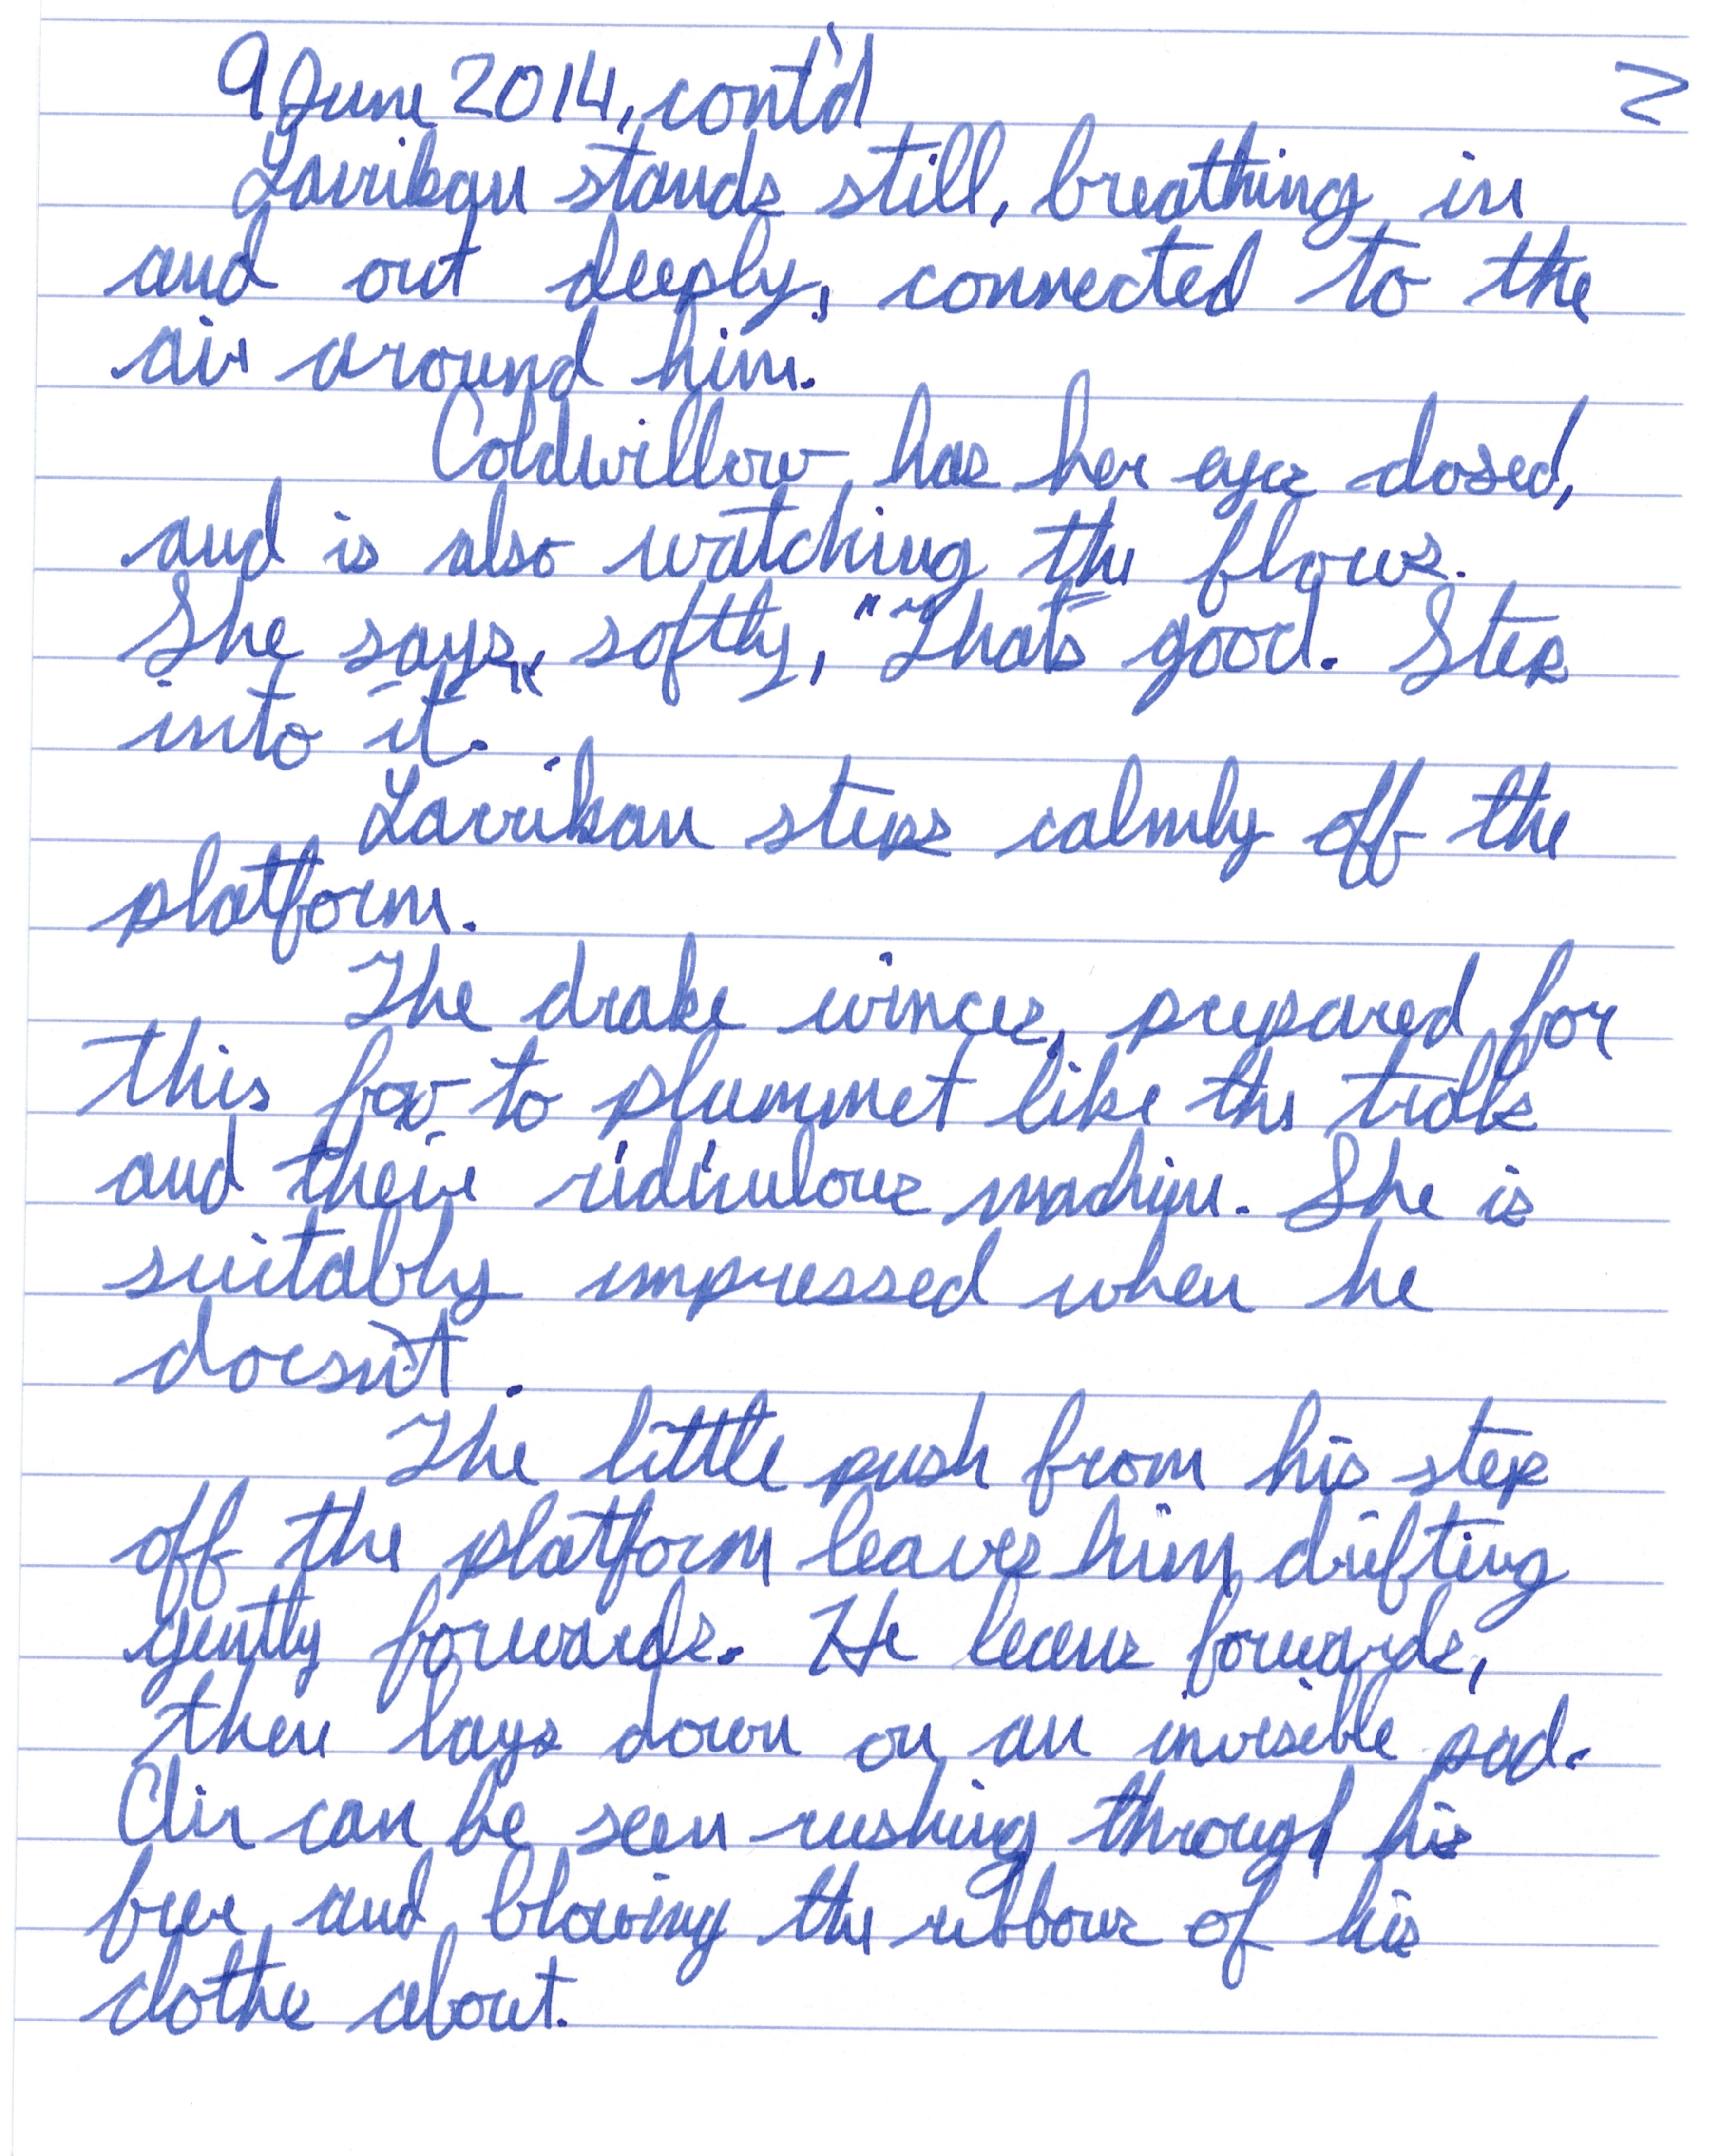 9 June 2014, cont'd 2
Larrikan stands still, breathing in
and out deeply, connected to the
air around him.
Coldwillow has her eyes closed,
and is also watching the flows.
She says, softly, "That's good. Step
into it."
Larrikan steps calmly off the
platform.
The drake winces, prepared for
this fox to plummet like the trolls
and their ridiculous machine. She is
suitably impressed when he
doesn't.
The little push from his step
off the platform leaves him drifting
gently forwards. He leans forwards,
then lays down on an invisible pad.
Air can be seen rushing through his
fur, and blowing the ribbons of his
clothe about.